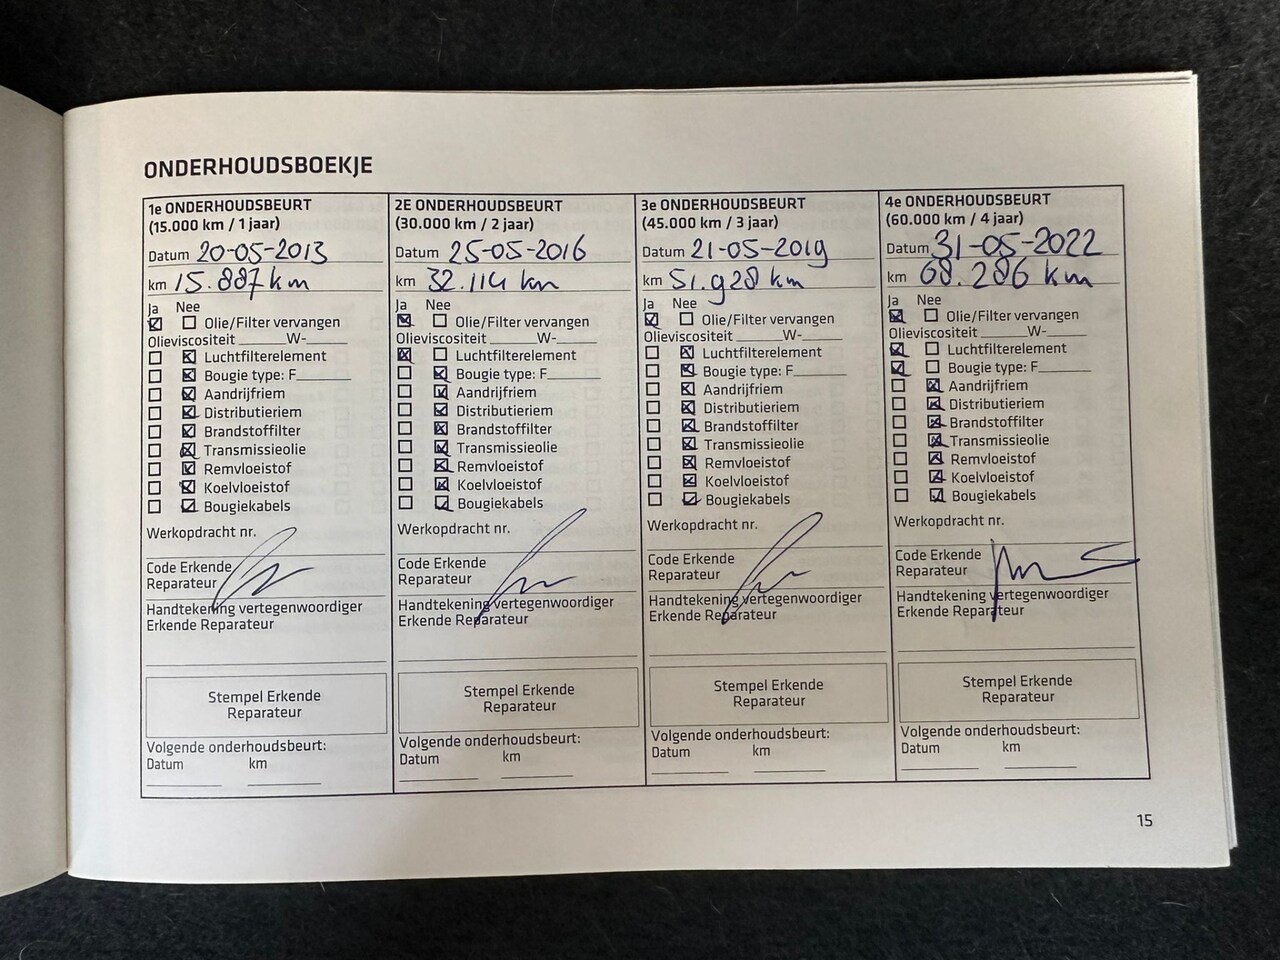 ONDERHOUDSBOEKJE
1e ONDERHOUDSBEURT
(15.000 km / 1 jaar)
Datum 20-05-2013
km 15.887 km
Ja Nee
Olie/Filter vervangen
Olieviscositeit ______W-______
Luchtfilterelement
Bougie type: F________
Aandrijfriem
Distributieriem
Brandstoffilter
Transmissieolie
Remvloeistof
Koelvloeistof
Bougiekabels
Werkopdracht nr.
Code Erkende
Reparateur
Handtekening vertegenwoordiger
Erkende Reparateur
Stempel Erkende
Reparateur
Volgende onderhoudsbeurt:
Datum km
2E ONDERHOUDSBEURT
(30.000 km / 2 jaar)
Datum 25-05-2016
km 32.114 km
Ja Nee
Olie/Filter vervangen
Olieviscositeit ______W-______
Luchtfilterelement
Bougie type: F________
Aandrijfriem
Distributieriem
Brandstoffilter
Transmissieolie
Remvloeistof
Koelvloeistof
Bougiekabels
Werkopdracht nr.
Code Erkende
Reparateur
Handtekening vertegenwoordiger
Erkende Reparateur
Stempel Erkende
Reparateur
Volgende onderhoudsbeurt:
Datum km
3e ONDERHOUDSBEURT
(45.000 km / 3 jaar)
Datum 21-05-2019
km 51.928 km
Ja Nee
Olie/Filter vervangen
Olieviscositeit ______W-______
Luchtfilterelement
Bougie type: F________
Aandrijfriem
Distributieriem
Brandstoffilter
Transmissieolie
Remvloeistof
Koelvloeistof
Bougiekabels
Werkopdracht nr.
Code Erkende
Reparateur
Handtekening vertegenwoordiger
Erkende Reparateur
Stempel Erkende
Reparateur
Volgende onderhoudsbeurt:
Datum km
4e ONDERHOUDSBEURT
(60.000 km / 4 jaar)
Datum 31-05-2022
km 68.286 km
Ja Nee
Olie/Filter vervangen
Olieviscositeit ______W-______
Luchtfilterelement
Bougie type: F________
Aandrijfriem
Distributieriem
Brandstoffilter
Transmissieolie
Remvloeistof
Koelvloeistof
Bougiekabels
Werkopdracht nr.
Code Erkende
Reparateur
Handtekening vertegenwoordiger
Erkende Reparateur
Stempel Erkende
Reparateur
Volgende onderhoudsbeurt:
Datum km
15